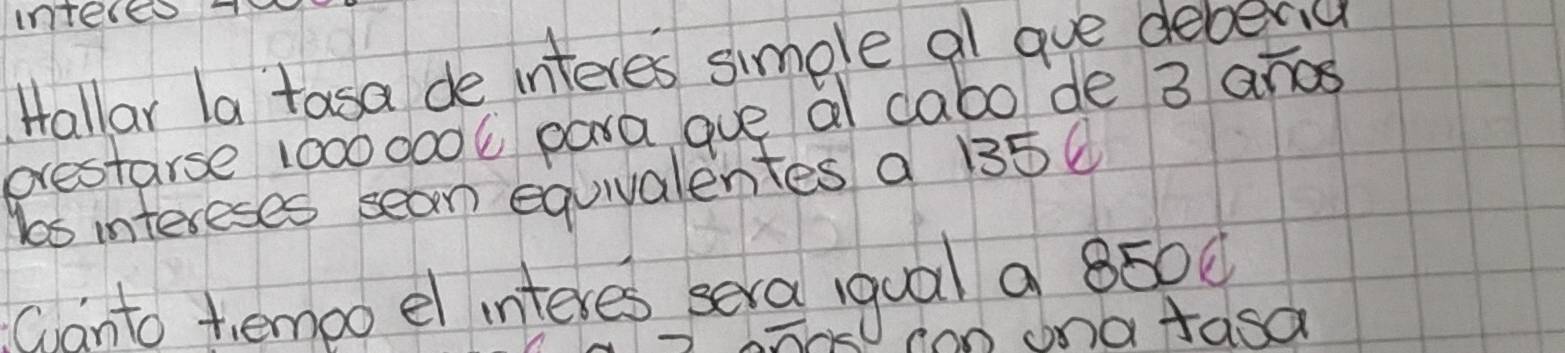 interes
Hallar la tasa de interés simple al que deberia
prestarse 1000000₡ para que al cabo de 3 años
los intereses sean equivalentes a 135₡
Cuanto tiempo el interés sera igual a 850₡
a años con una tasa